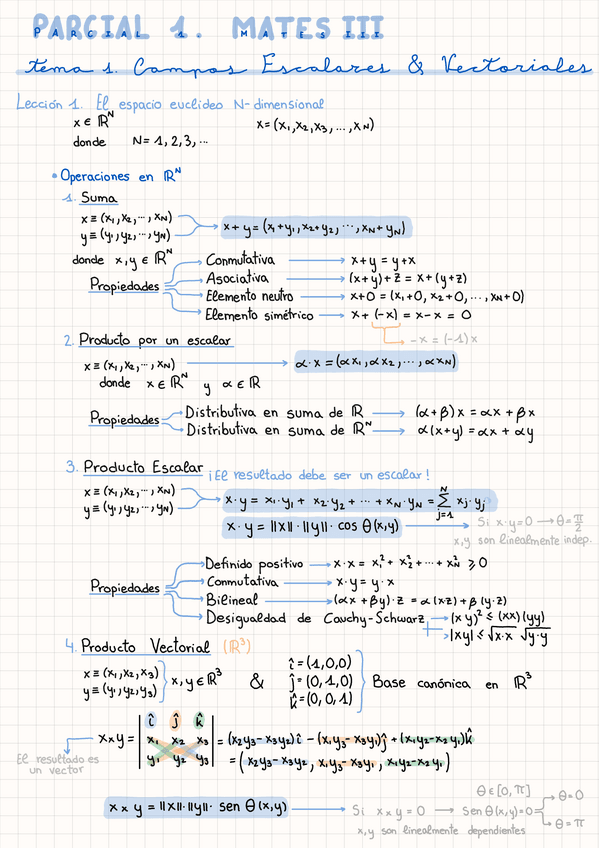 PARCIAL 1. MATES III
tema 1. Campos Escalares & Vectoriales
Lección 1. El espacio euclideo N-dimensional
x ∈ ℝᴺ x=(x₁,x₂,x₃,...,x_N)
donde N= 1, 2, 3, ...
• Operaciones en ℝᴺ
1. Suma
x ≡ (x₁,x₂,...,x_N)
y ≡ (y₁,y₂,...,y_N)
x + y = (x₁+y₁, x₂+y₂, ..., x_N+y_N)
donde x,y ∈ ℝᴺ
Propiedades
Conmutativa → x+y = y+x
Asociativa → (x+y)+z = x+(y+z)
Elemento neutro → x+0 = (x₁+0, x₂+0, ..., x_N+0)
Elemento simétrico → x + (-x) = x-x = 0
-x = (-1)x
2. Producto por un escalar
x ≡ (x₁,x₂,...,x_N) → α·x = (αx₁, αx₂, ..., αx_N)
donde x ∈ ℝᴺ y α ∈ ℝ
Propiedades
Distributiva en suma de ℝ → (α+β)x = αx + βx
Distributiva en suma de ℝᴺ → α(x+y) = αx + αy
3. Producto Escalar ¡El resultado debe ser un escalar!
x ≡ (x₁,x₂,...,x_N)
y ≡ (y₁,y₂,...,y_N)
x·y = x₁·y₁ + x₂·y₂ + ... + x_N·y_N = ∑_{j=1}^{N} xj·yj
x·y = ||x||·||y||·cos θ(x,y) → Si x·y=0 → θ=π/2
x,y son linealmente indep.
Propiedades
Definido positivo → x·x = x₁²+x₂²+...+x_N² ≥ 0
Conmutativa → x·y = y·x
Bilineal → (αx + βy)·z = α(xz)+β(y·z)
Desigualdad de Cauchy-Schwarz → (xy)² ≤ (xx)(yy)
→ |xy| ≤ √x·x √y·y
4. Producto Vectorial (ℝ³)
x ≡ (x₁,x₂,x₃)
y ≡ (y₁,y₂,y₃)
x,y ∈ ℝ³ &
î = (1,0,0)
ĵ = (0,1,0)
k̂ = (0,0,1)
Base canónica en ℝ³
î ĵ k̂
x×y = x₁ x₂ x₃ = (x₂y₃-x₃y₂)î - (x₁y₃-x₃y₁)ĵ + (x₁y₂-x₂y₁)k̂
y₁ y₂ y₃ = (x₂y₃-x₃y₂, x₁y₃-x₃y₁, x₁y₂-x₂y₁)
El resultado es
un vector
θ ∈ [0,π]
x × y = ||x||·||y||· sen θ(x,y) → Si x×y=0 → sen θ(x,y)=0
→ θ=0
→ θ=π
x,y son linealmente dependientes